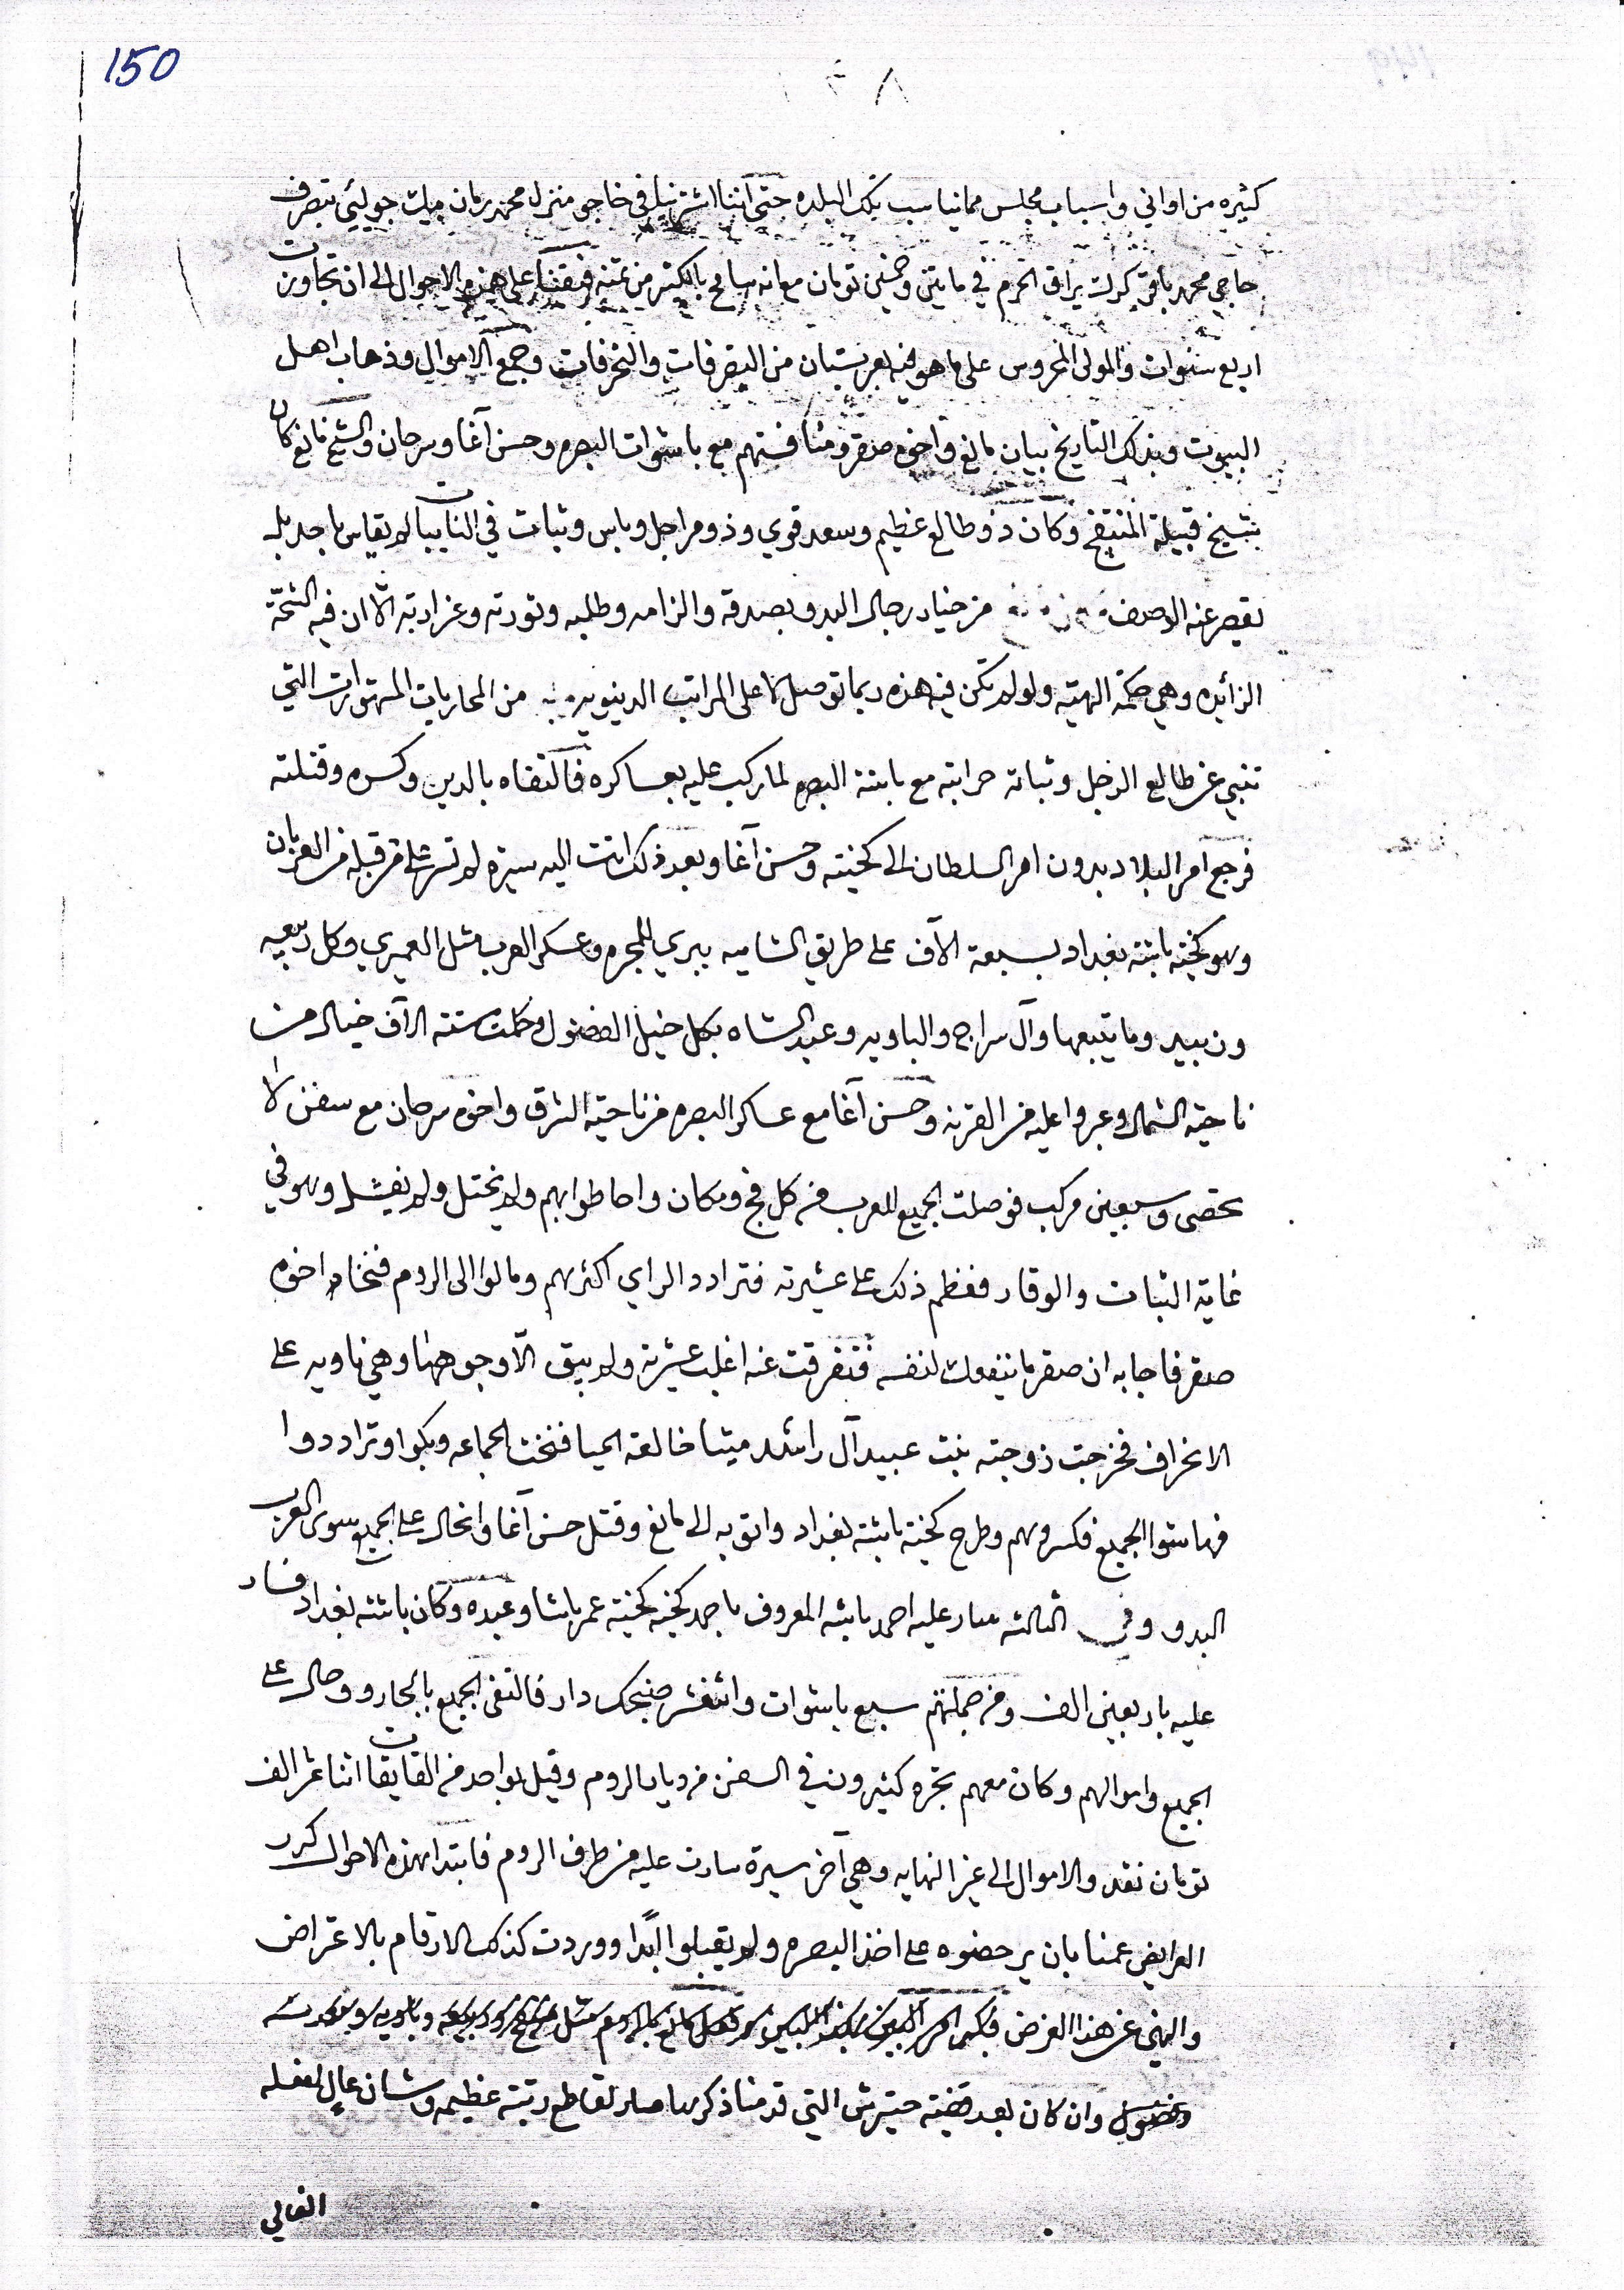 150
١٤٨
كثيره من اواني واسباب مجلس مما يناسب تلك البلده حتى اننا اشترينا في خاجو منزل محمد زمان بيك جوليئي بتصرف
حاجي محمد باقر يراق الحرم في مايتين وخمسين تومان مع انه باكثر من ثمنه فبقينا على هذه الاحوال الى ان تجاوزت
اربع سنوات والمولى المحروس على ما هو فيه بعربستان من التصرفات والتحرفات وجمع الاموال وذهاب اهل
البيوت وبذلك التاريخ بيان مانع واخوه صقر ومنافستهم مع باشوات البصره وحسن آغا وسرحان والشيخ مانع كان
شيخ قبيلة المنتفج وكان ذو طالع عظيم وسعد قوي وذو مراجل وباس وثبات في النايبات لا يقاس باحد بل
يقصر عنه الوصف من خيار رجال البدو بصدقه والزامه وطلبه وثورته الّا ان فيه الشحّة
الزائده وهي حكمة الهيّه ولو لم تكن فيه هذه ربما توصل لاعلى المراتب الدنيويه من المحاربات المشهورات التي
تنبي عن طالع الرجل وثباته حرابته مع باشة البصره لما ركب عليه بعساكره فالتقاه بالدير وكسره وقتلته
فرجع امر البلاد بدون امر السلطان الى كخيته وحسن آغا وبعد ذلك اتت اليه سيرة لم تسر على من قبله من العربان
وهو كخية باشة بغداد بسبعة الآف على طريق الشاميه وعسكر العرب مثل العميري وكل ربيعه
وزبيد وما يتبعها وآل سراج والباويه وعبد الشاه بكل خيل الفضول وكملت ستة الآف خيال من
ناحية الشمال وعبروا عليه من القرنه وحسن آغا مع عساكر البصره من ناحية الشرق واخوه سرحان مع سفن لا
تحصى وسبعين مركب فوصلت الجميع للعرب من كل فج ومكان واحاطوا بهم ولم يختل ولم يفشل وهو في
غاية الثبات والوقار فعظم ذلك على عشيرته فتراد الراي اكثرهم ومالوا الى الروم فنخاه اخوه
صقر فاجابه ان صقر ما ينفعك لنفسه فتفرقت عنه اغلب عشيرته ولم يبق الّا وجوهها وهي ناويه على
الانحراف فخرجت زوجته بنت عبيد آل راشد خالعة الحيا فنخت الجماعه وبكوا وترادوا
فهاشوا الجميع فكسروهم وطرح كخية باشة بغداد واتو به الى مانع وقتل حسن آغا وانحال على الجميع سوى العرب
البدو وفي الثالثه سار عليه احمد باشه المعروف باحمد كخيه كخية عمر باشا وعبده وكان باشة بغداد فسار
عليه باربعين الف ومن جملتهم سبع باشوات واثنعشر صنجك دار فالتقى الجميع بالجارو وحال على
الجميع واموالهم وكان معهم تجره كثيرون في السفن من ديار الروم وقيل بواحد من القايقات اثنا عشر الف
تومان نقد والاموال الى غير النهايه وهي آخر سيرة سارت عليه من طرف الروم فابتدا بهذه الاحوال كرر
العرايض عمنا بان يرخصوه على اخذ البصره ولم يقبلوا ابدًا ووردت كذلك الارقام بالاعتراض
والنهي عن هذا الغرض
وفضول وان كان بعد قضية حترش التي قدمنا ذكرها صار لقاطع رتبة عظيمه وشان عالٍ لفعله
الفالي